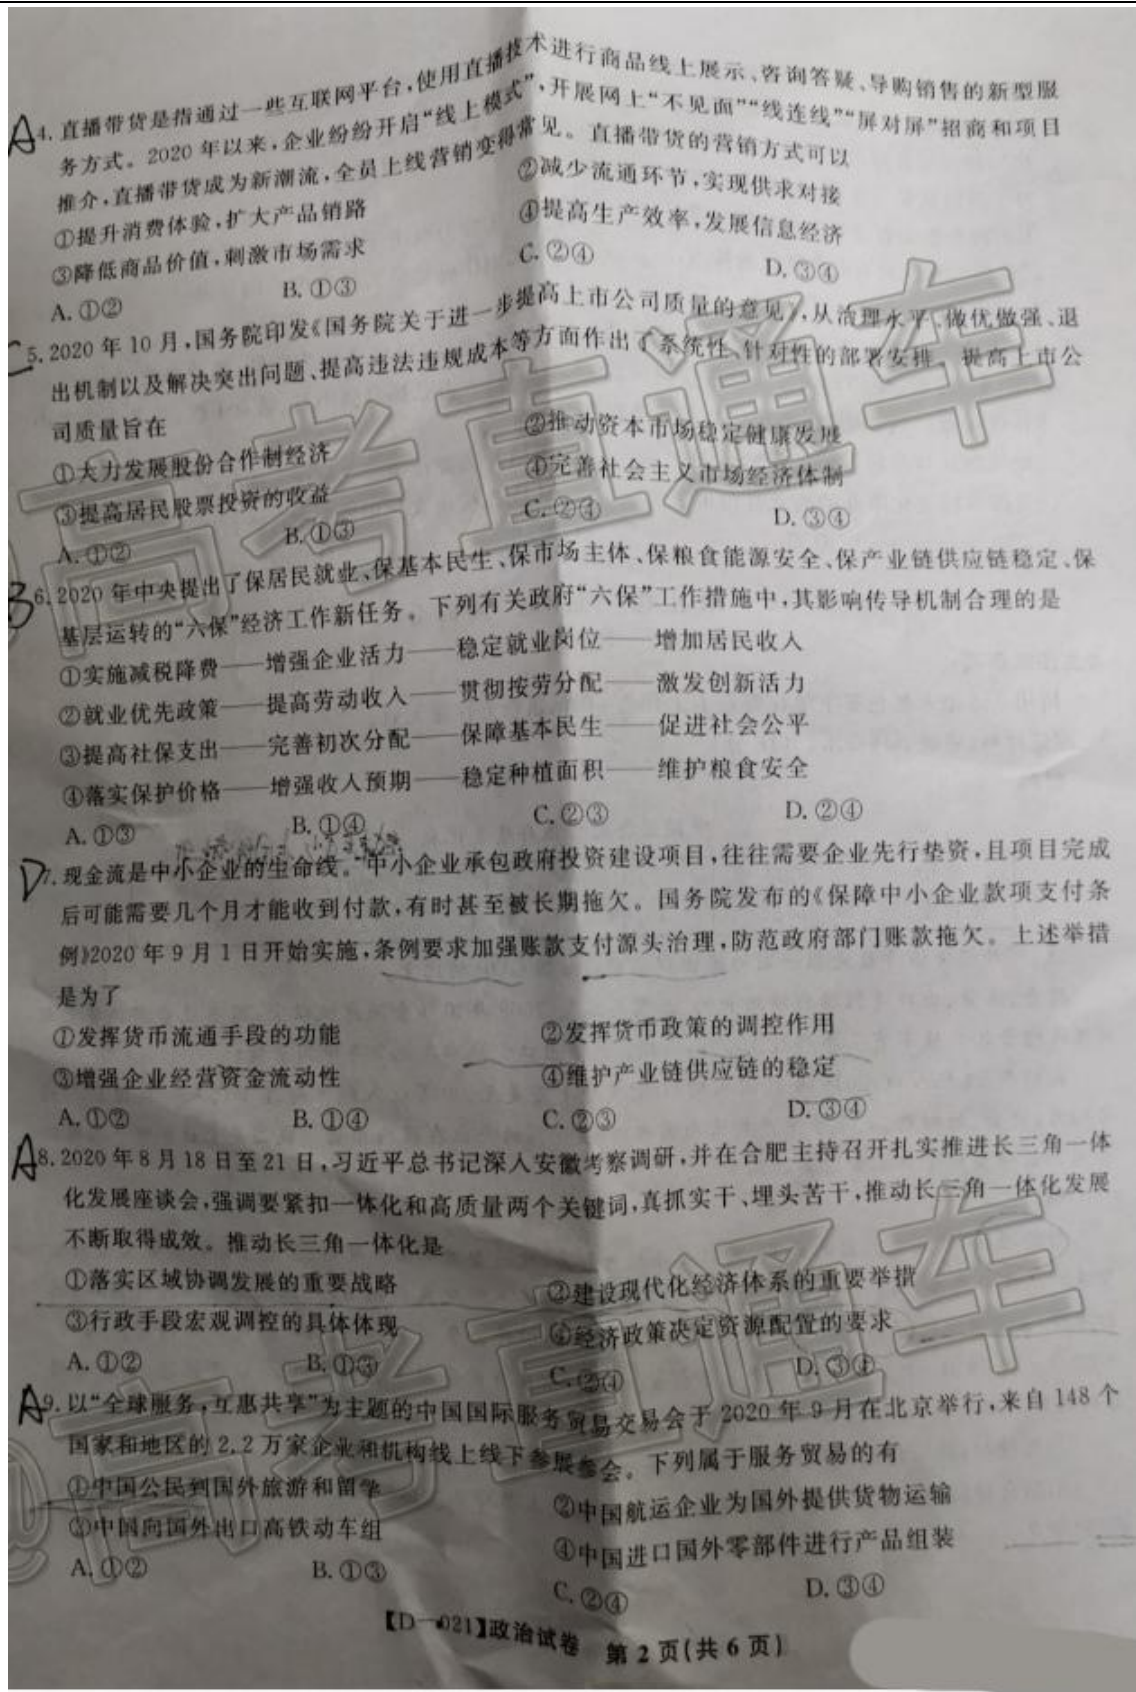 A 4. 直播带货是指通过一些互联网平台,使用直播技术进行商品线上展示、咨询答疑、导购销售的新型服
务方式。2020 年以来,企业纷纷开启“线上模式”,开展网上“不见面”“线连线”“屏对屏”招商和项目
推介,直播带货成为新潮流,全员上线营销变得常见。直播带货的营销方式可以
①提升消费体验,扩大产品销路 ②减少流通环节,实现供求对接
③降低商品价值,刺激市场需求 ④提高生产效率,发展信息经济
A. ①② B. ①③ C. ②④ D. ③④
C 5. 2020 年 10 月,国务院印发《国务院关于进一步提高上市公司质量的意见》,从治理水平、做优做强、退
出机制以及解决突出问题、提高违法违规成本等方面作出了系统性、针对性的部署安排。提高上市公
司质量旨在
①大力发展股份合作制经济 ②推动资本市场稳定健康发展
③提高居民股票投资的收益 ④完善社会主义市场经济体制
A. ①② B. ①③ C. ②④ D. ③④
B 6. 2020 年中央提出了保居民就业、保基本民生、保市场主体、保粮食能源安全、保产业链供应链稳定、保
基层运转的“六保”经济工作新任务。下列有关政府“六保”工作措施中,其影响传导机制合理的是
①实施减税降费——增强企业活力——稳定就业岗位——增加居民收入
②就业优先政策——提高劳动收入——贯彻按劳分配——激发创新活力
③提高社保支出——完善初次分配——保障基本民生——促进社会公平
④落实保护价格——增强收入预期——稳定种植面积——维护粮食安全
A. ①③ B. ①④ C. ②③ D. ②④
D 7. 现金流是中小企业的生命线。中小企业承包政府投资建设项目,往往需要企业先行垫资,且项目完成
后可能需要几个月才能收到付款,有时甚至被长期拖欠。国务院发布的《保障中小企业款项支付条
例》2020 年 9 月 1 日开始实施,条例要求加强账款支付源头治理,防范政府部门账款拖欠。上述举措
是为了
①发挥货币流通手段的功能 ②发挥货币政策的调控作用
③增强企业经营资金流动性 ④维护产业链供应链的稳定
A. ①② B. ①④ C. ②③ D. ③④
A 8. 2020 年 8 月 18 日至 21 日,习近平总书记深入安徽考察调研,并在合肥主持召开扎实推进长三角一体
化发展座谈会,强调要紧扣一体化和高质量两个关键词,真抓实干、埋头苦干,推动长三角一体化发展
不断取得成效。推动长三角一体化是
①落实区域协调发展的重要战略 ②建设现代化经济体系的重要举措
③行政手段宏观调控的具体体现 ④经济政策决定资源配置的要求
A. ①② B. ①③ C. ②④ D. ③④
A 9. 以“全球服务,互惠共享”为主题的中国国际服务贸易交易会于 2020 年 9 月在北京举行,来自 148 个
国家和地区的 2.2 万家企业和机构线上线下参展参会。下列属于服务贸易的有
①中国公民到国外旅游和留学 ②中国航运企业为国外提供货物运输
③中国向国外出口高铁动车组 ④中国进口国外零部件进行产品组装
A. ①② B. ①③ C. ②④ D. ③④
【D-021】政治试卷 第 2 页(共 6 页)
@高考直通车
@高考直通车